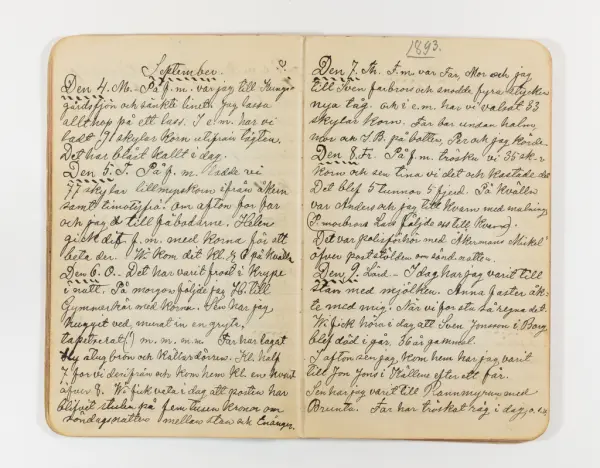 September.
Den 4. M. På f. m. var jag till Kungs-
gårdssjön och sänkte lineth. Jag lassa
allt hop på ett lass. I e. m. har vi
ladt 71 skylar korn utifrån tägten.
Det har blåst kallt i dag.
Den 5. T. På f. m. ladde vi
77 skylar tillmerskorn ifrån åkern
samt timotejfrö. Om afton for far
och jag till fäbodarne. Helen
gick dit f. m. med korna för att
beta der. Wi kom dit kl. 8 på kvälln
Den 6. O. Det har varit frost i Krype
i natt. På morgon följde jag H. till
Gymmerkär med korna. Sen har jag
huggit ved, murat in en gryta,
tapetserat(!) m. m. m. Far har lagat
sly alug brön och källardörren. Kl. half
7 for vi derifrån och kom hem kl. en kvart
öfver 8. Wi fick veta i dag att posten har
blifvit stulen på fem tusen kronor om
söndagsnatten mellan stan och Enånger.
1893.
Den 7. Th. F. m. var Far, Mor och jag
till Sven farbrors och snodde fyra stycken
nya tåg. och i e. m. har vi valsat 83
skylar korn. Far bar undan halm,
mor och J. B. på botten, Per och jag körde.
Den 8. Fr. På f. m. tröska vi 35 sk.
korn och sen tina vi det och kastade det
Det blef 5 tunnor 5 fjerd. På kvälln
var Anders och jag till kvarn med malning
(P. morbrors Lars följde oss till kvarn).
Det var polisförhör med "Åkermans Mickel"
öfver poststölden om sönd. natten.
Den 9. Lörd. I dag har jag varit till
stan med mjölken. Anna faster åk-
te med mig. När vi for stu hä regna det.
Wi fick höra i dag att Sven Jonsson i Borg
blef död i går. 36 år gammal.
I afton sen jag kom hem har jag varit
till Jon Jons i Wällens efter ett får.
Sen har jag varit till Raunmyrum med
Brunta. Far har tröskat råg i dag,